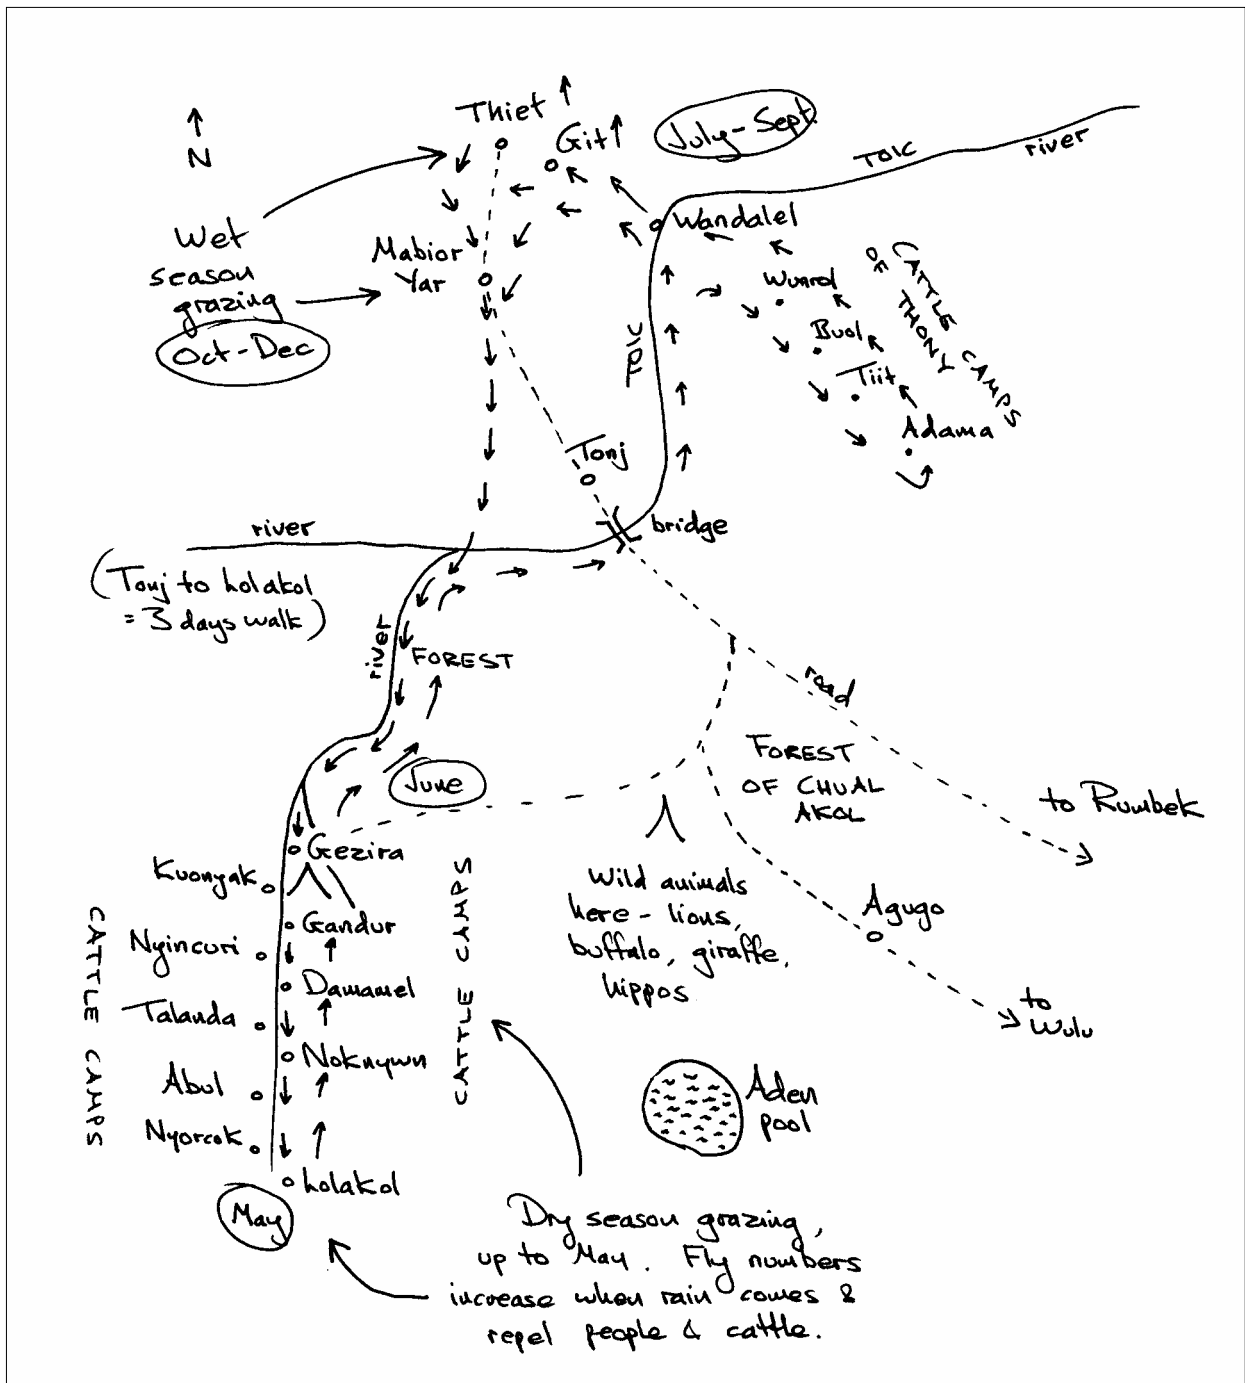 Thiet
Git
July-Sept.
N
TOIC
river
Wandalel
Wet
season
grazing
Oct-Dec
Mabior
Yar
CATTLE CAMPS
OF THONY
Wunrol
Buol
Tiit
Adama
TOIC
Tonj
bridge
river
(Tonj to Lolakol
= 3 days walk)
river
FOREST
road
June
FOREST
OF CHUAL
AKOL
to Rumbek
Gezira
Kuonyak
Gandur
Nyincuri
Damamel
Talanda
Noknywn
Abul
Nyorcok
Lolakol
May
CATTLE CAMPS
CATTLE CAMPS
Wild animals
here - lions,
buffalo, giraffe,
hippos
Agugo
to
Wulu
Aden
pool
Dry season grazing,
up to May. Fly numbers
increase when rain comes &
repel people & cattle.